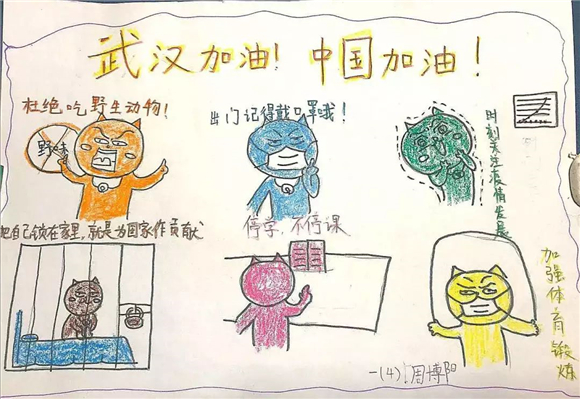 武汉加油！中国加油！
杜绝吃野生动物！
野味
出门记得戴口罩哦！
时刻关注疫情发展
把自己锁在家里,就是为国家作贡献
停学,不停课
加强体育锻炼
一(4) 周博阳